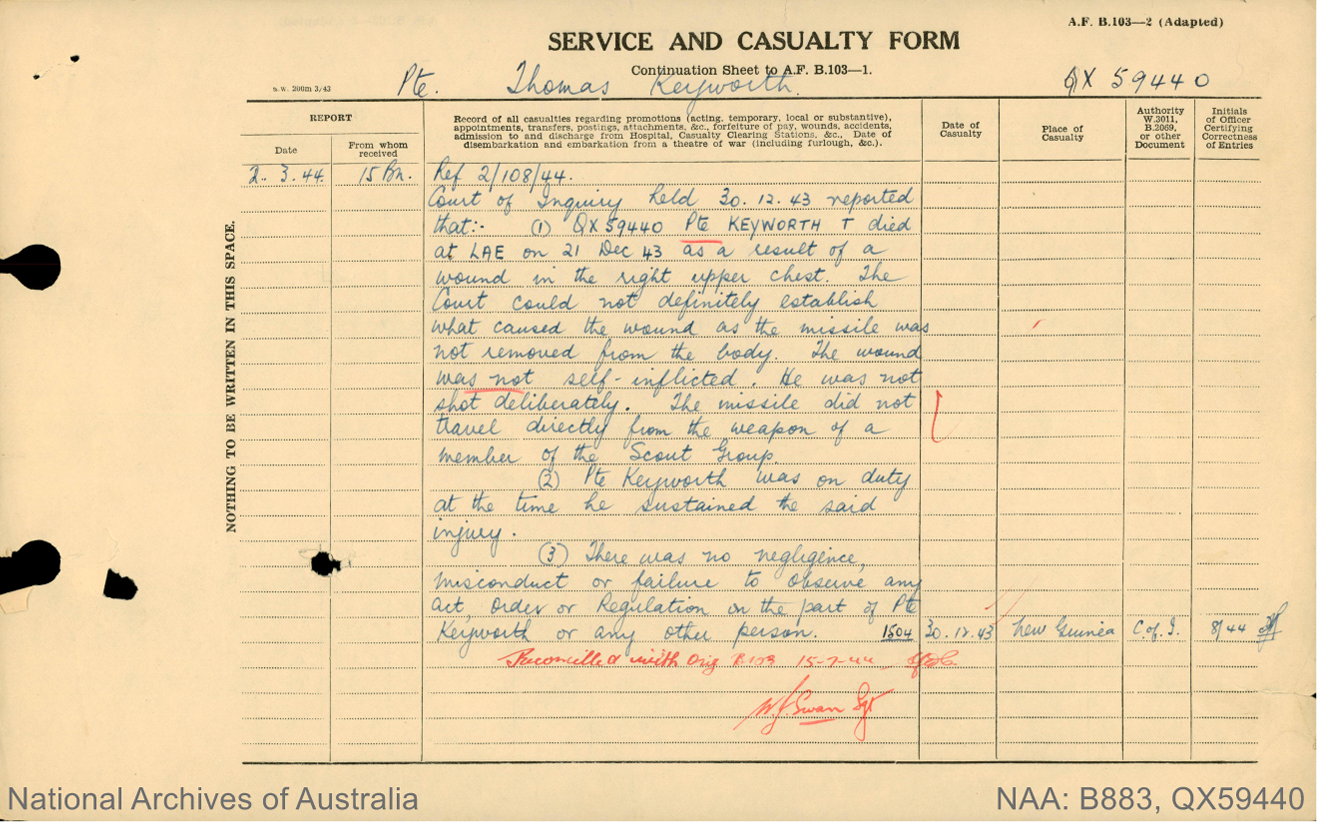 A.F. B.103—2 (Adapted)
SERVICE AND CASUALTY FORM
Continuation Sheet to A.F. B.103—1.
s.w. 200m 3/43
Pte. Thomas Keyworth. QX 59440
REPORT
Date
From whom received
Record of all casualties regarding promotions (acting, temporary, local or substantive),
appointments, transfers, postings, attachments, &c., forfeiture of pay, wounds, accidents,
admission to and discharge from Hospital, Casualty Clearing Stations, &c., Date of
disembarkation and embarkation from a theatre of war (including furlough, &c.).
Date of Casualty
Place of Casualty
Authority W.3011, B.2069, or other Document
Initials of Officer Certifying Correctness of Entries
NOTHING TO BE WRITTEN IN THIS SPACE.
2. 3. 44. 15 Bn. Ref 2/108/44.
Court of Inquiry held 30. 12. 43 reported
that:- (1) QX59440 Pte KEYWORTH T died
at LAE on 21 Dec 43 as a result of a
wound in the right upper chest. The
Court could not definitely establish
what caused the wound as the missile was
not removed from the body. The wound
was not self-inflicted. He was not
shot deliberately. The missile did not
travel directly from the weapon of a
member of the Scout Group.
(2) Pte Keyworth was on duty
at the time he sustained the said
injury.
(3) There was no negligence,
misconduct or failure to observe any
act, Order or Regulation on the part of Pte
Keyworth or any other person. 1504 30. 12. 43 New Guinea C. of I. 8/44
Reconciled with Orig B103 15-7-44
W.J. Swan Sgt
National Archives of Australia
NAA: B883, QX59440